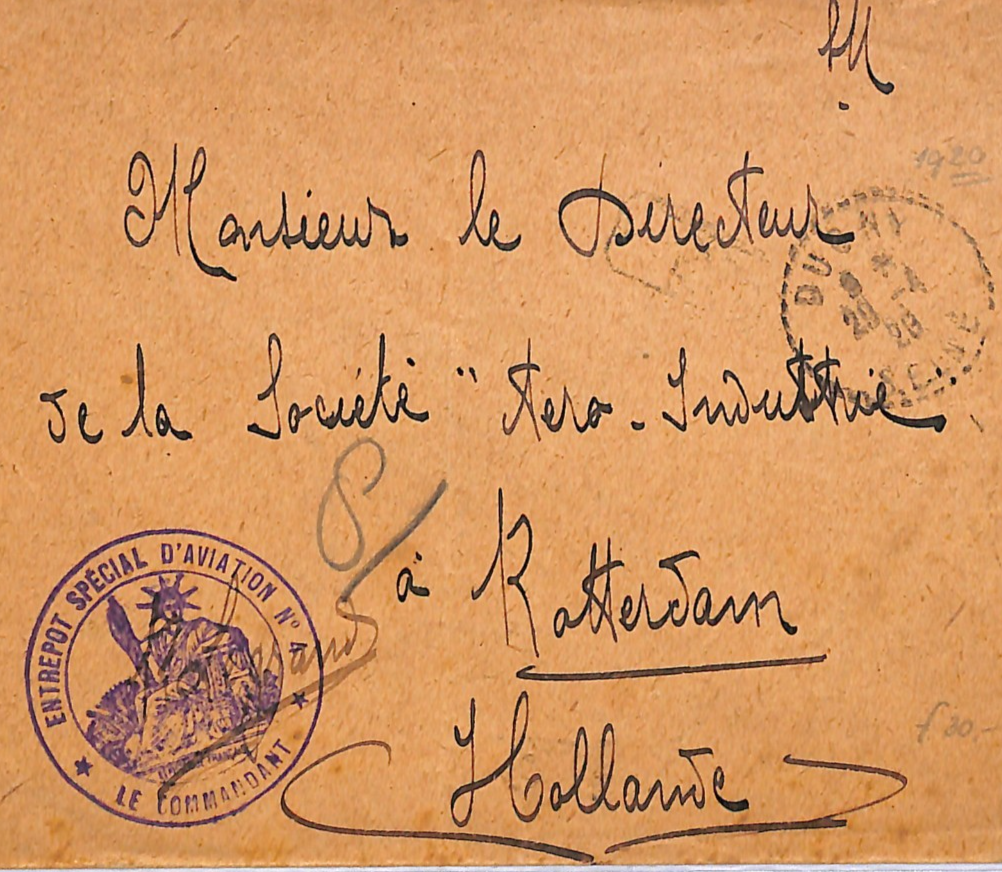 FM
1920
Monsieur le Directeur
DUGNY
29 - 1
20
SEINE
de la Société "Aero-Industrie"
8
à Rotterdam
Hollande
ENTREPOT SPÉCIAL D'AVIATION N° 4
LE COMMANDANT
f 30,-